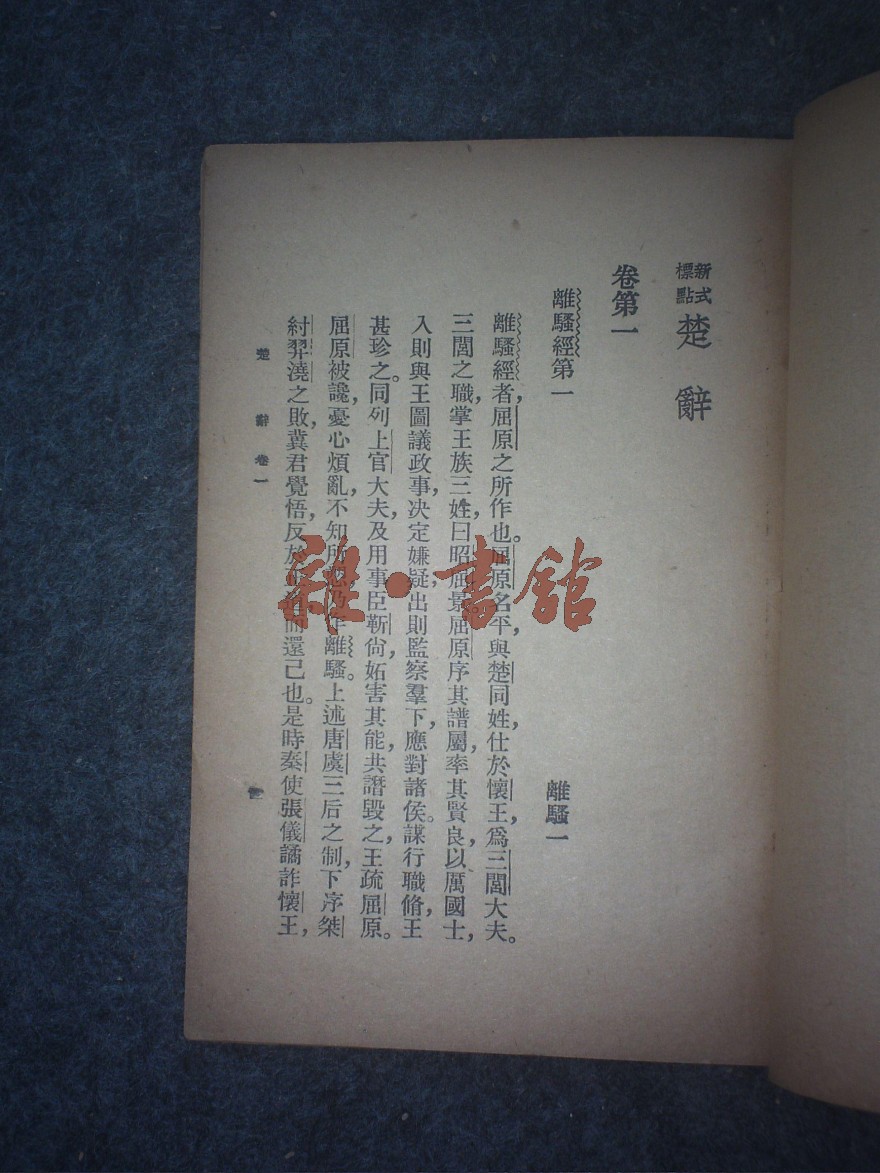 新式標點 楚辭
卷第一
離騷經第一 離騷一
離騷經者，屈原之所作也。屈原名平，與楚同姓，仕於懷王，爲三閭大夫。
三閭之職，掌王族三姓，曰昭屈景。屈原序其譜屬，率其賢良，以厲國士，
入則與王圖議政事，決定嫌疑，出則監察羣下，應對諸侯。謀行職脩，王
甚珍之。同列上官大夫，及用事臣靳尙，妬害其能，共譖毀之，王疏屈原。
屈原被讒，憂心煩亂，不知所 作離騷。上述唐虞三后之制，下序桀
紂羿澆之敗，冀君覺悟，反於 而還己也。是時秦使張儀譎詐懷王，
楚辭 卷一
雜·書館